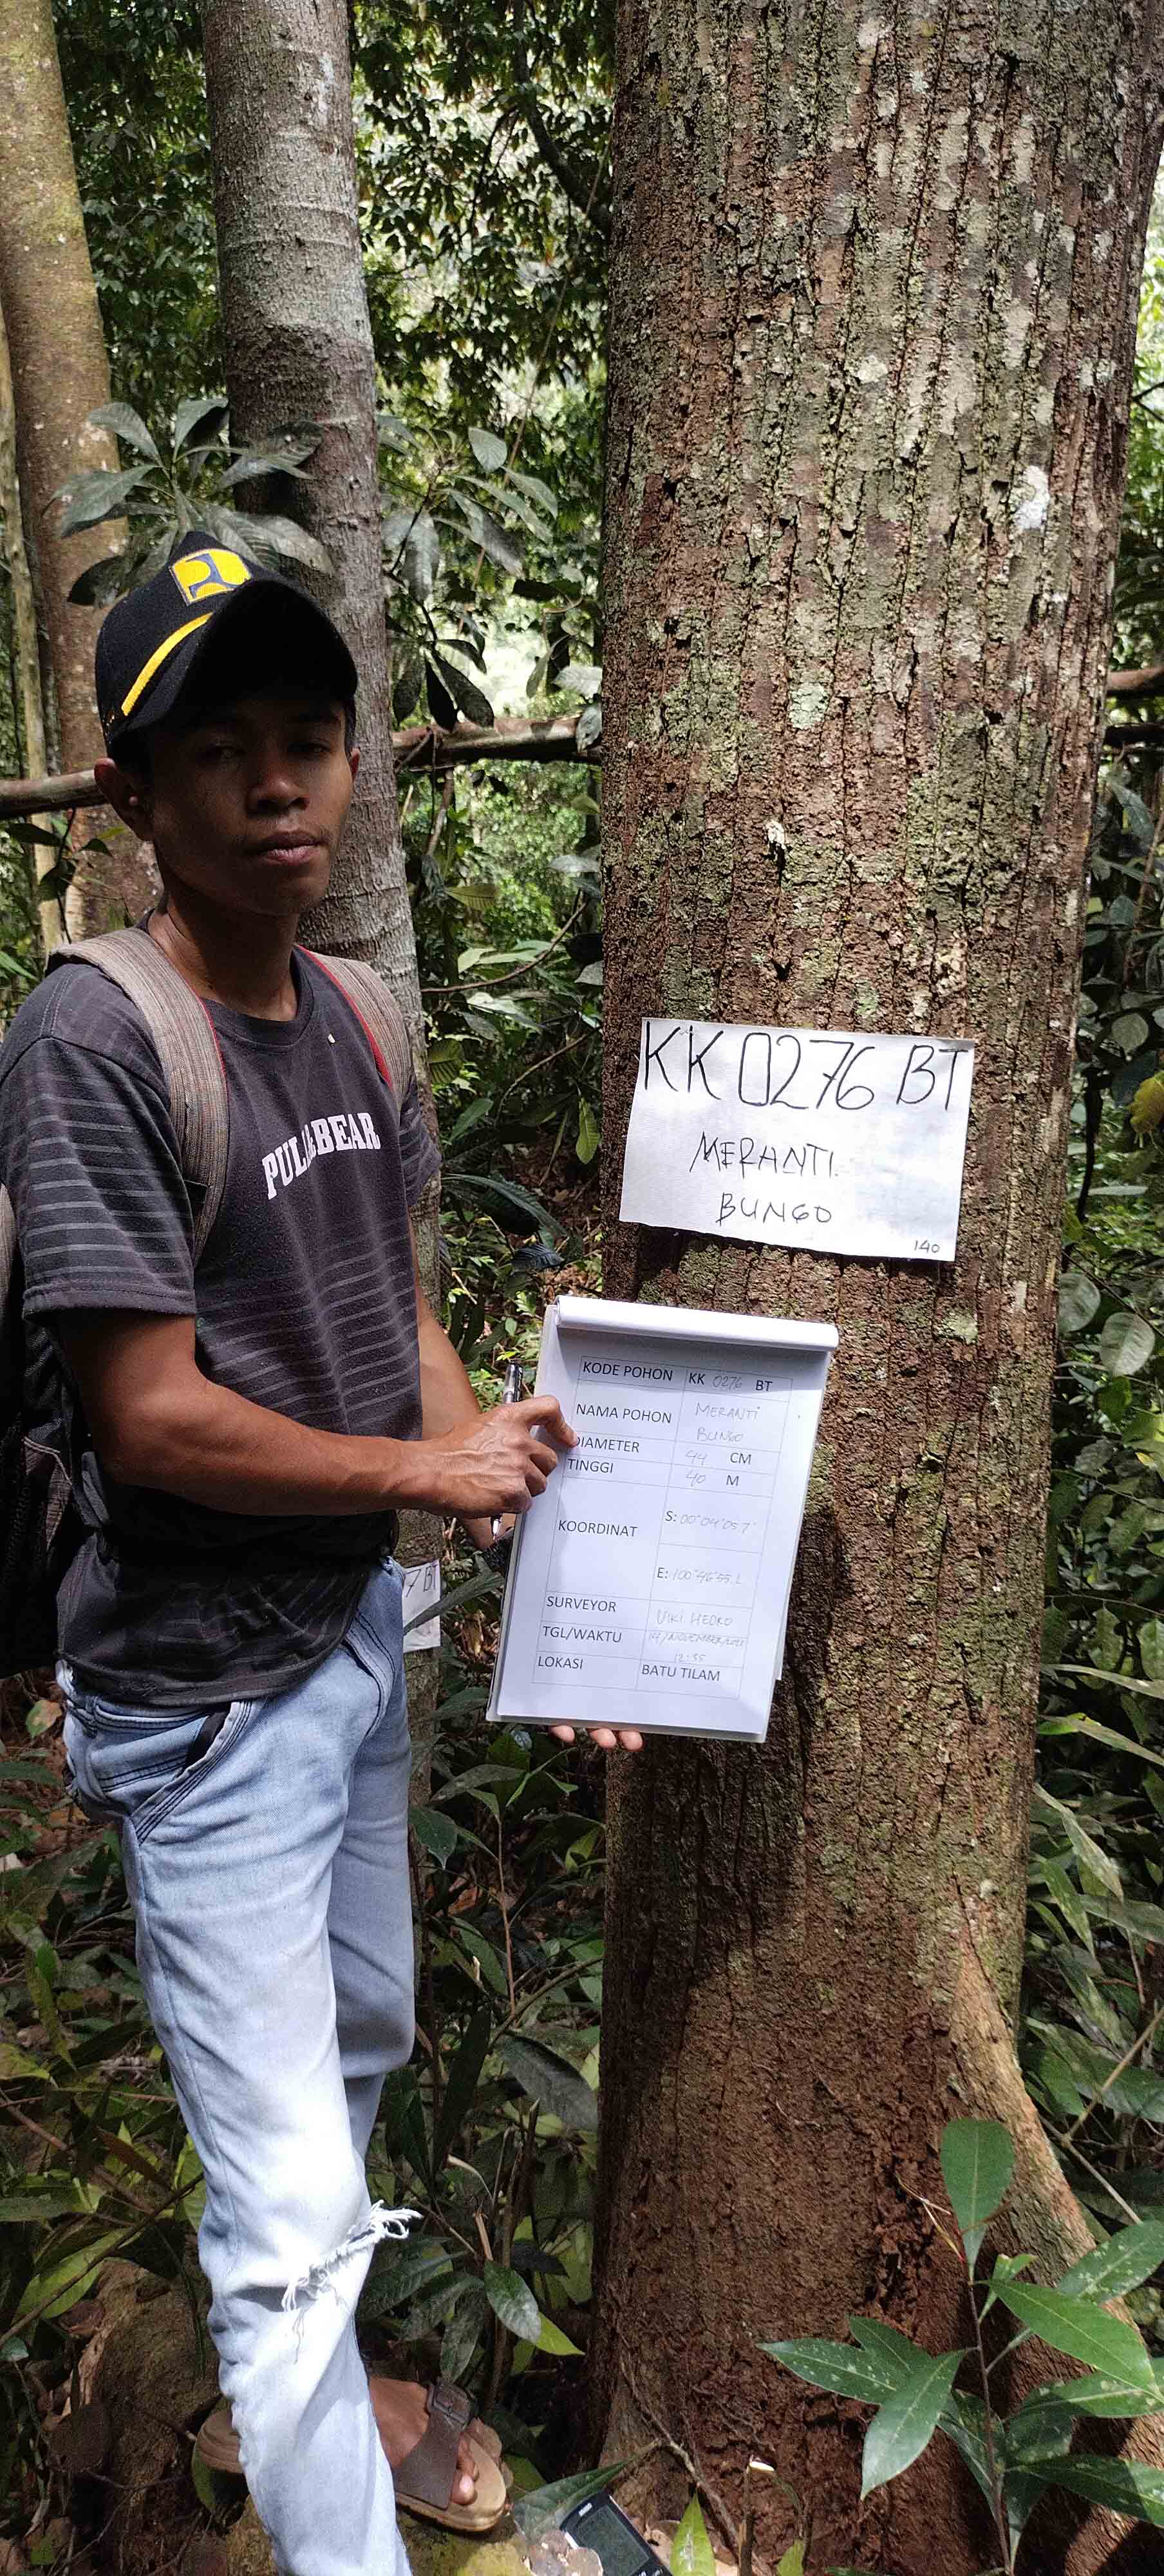 PULL&BEAR
KK 0276 BT
MERANTI
BUNGO
140
KODE POHON KK 0276 BT
NAMA POHON MERANTI
BUNGO
DIAMETER 44 CM
TINGGI 40 M
KOORDINAT S: 00°04'05.7"
E: 100°46'55.
SURVEYOR VIKI HEDRO
TGL/WAKTU NOVEMBER
12:55
LOKASI BATU TILAM
7 BT